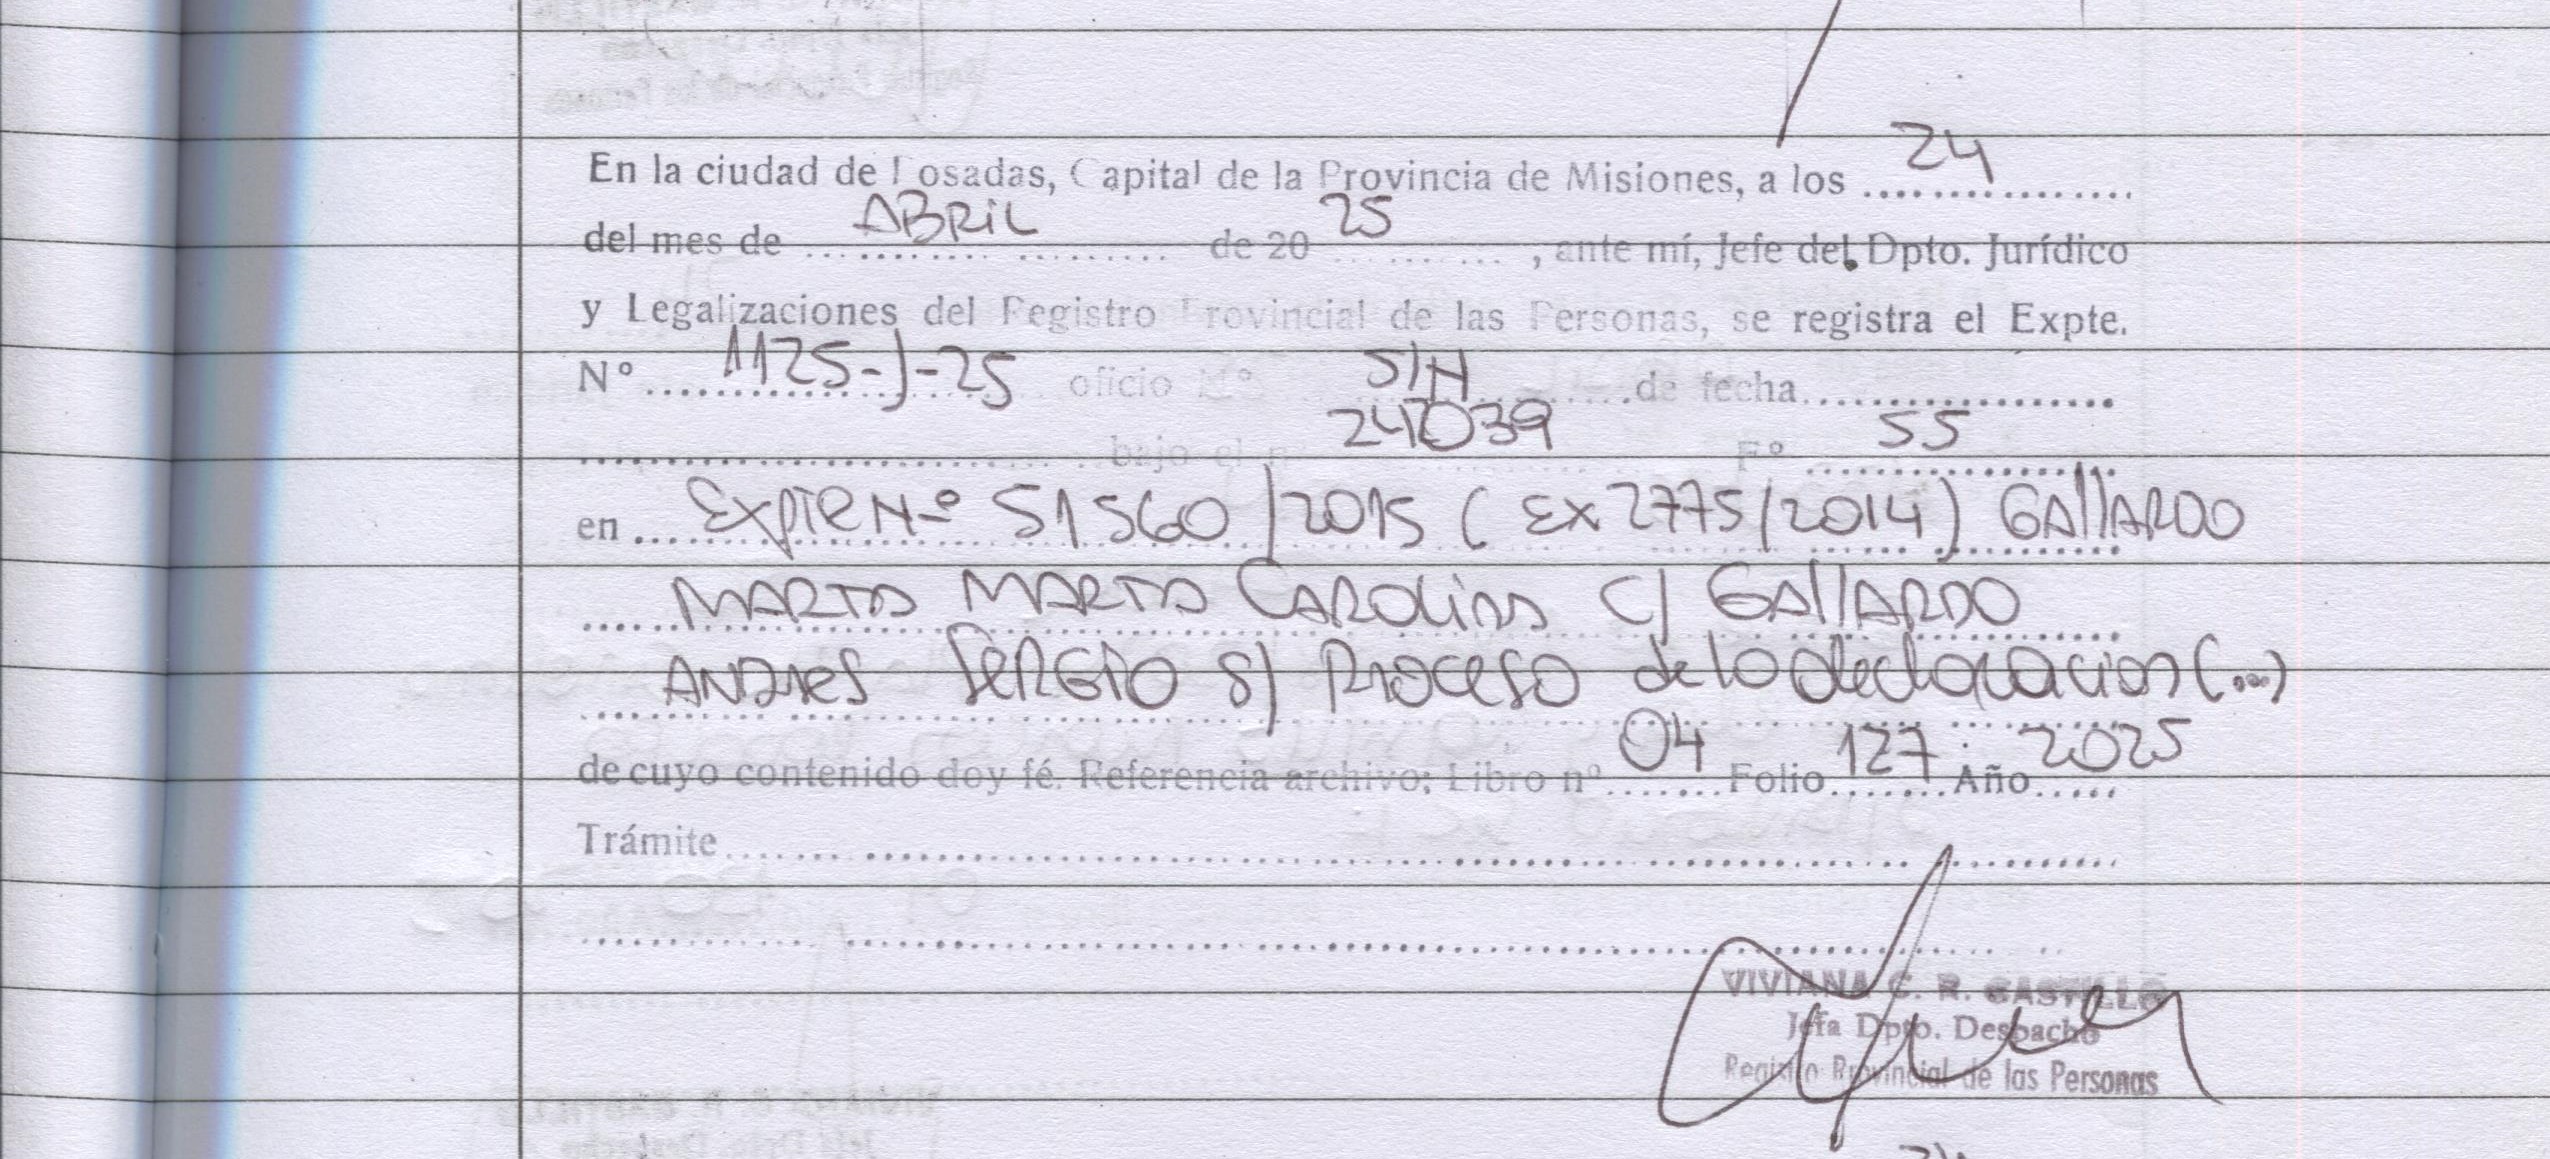 En la ciudad de Posadas, Capital de la Provincia de Misiones, a los 24
del mes de ABRIL de 20 25, ante mí, Jefe del Dpto. Jurídico
y Legalizaciones del Registro Provincial de las Personas, se registra el Expte.
Nº 1125-J-25 oficio Nº S/N de fecha
bajo el nº 242039 Fº 55
en Expte Nº 51560/2015 (EX 2775/2014) GALLARDO
MARTA MARTA CAROLINA C/ GALLARDO
ANDRES SERGIO S/ PROCESO de lo declaracion (...)
de cuyo contenido doy fé. Referencia archivo: Libro nº 04 Folio 127 Año 2025
Trámite
VIVIANA C. R. CASTILLO
Jefa Dpto. Despacho
Registro Provincial de las Personas